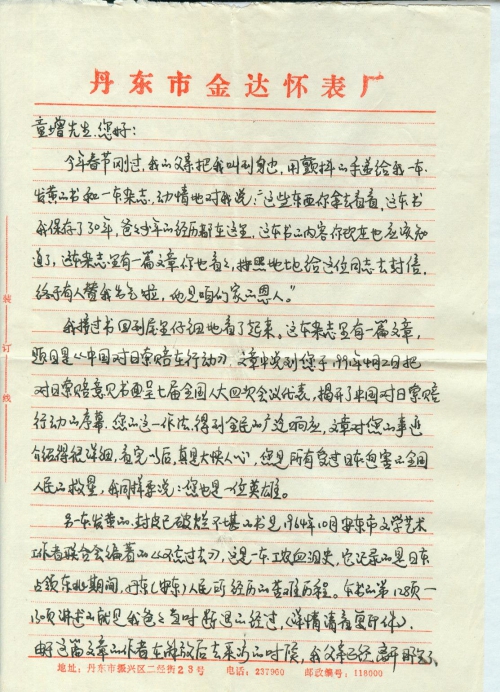 丹东市金达怀表厂
童增先生.您好:
今年春节刚过,我的父亲把我叫到身边,用颤抖的手递给我一本
发黄的书和一本杂志,动情地对我说:"这些东西你拿去看看,这本书
我保存了30年,爸爸少年的经历都在这里,这本书的内容你现在也应该知
道了,这本杂志里有一篇文章你也看看,按照地址给这位同志去封信,
终于有人替我出气啦,他是咱们家的恩人。"
我接过书回到屋里仔细地看了起来。这本杂志里有一篇文章,
题目是《中国对日索赔在行动》文章中说到您于1991年4月2日把
对日索赔意见书面呈七届全国人大四次会议代表,揭开了中国对日索赔
行动的序幕.您的这一作法,得到全民的广泛响应,文章对您的事迹
介绍得很详细,看完以后,真是大快人心,您是所有受过日本迫害的全国
人民的救星,我同样要说:您也是一位英雄。
另一本发黄的,封皮已破烂不堪的书是1964年10月安东市文学艺术
工作者联合会编著的《不忘过去》,这是一本工农血泪史,它记录的是日本
占领东北期间,丹东(安东)人民所经历的苦难历程。本书的第128页—
130页讲述的就是我爸爸当时的经过,(详情请看复印件),
由于这篇文章的作者在解放后去采访的时候,我父亲已经离开
装
订
线
地址:丹东市振兴区二经街23号 电话:237960 邮政编号:118000